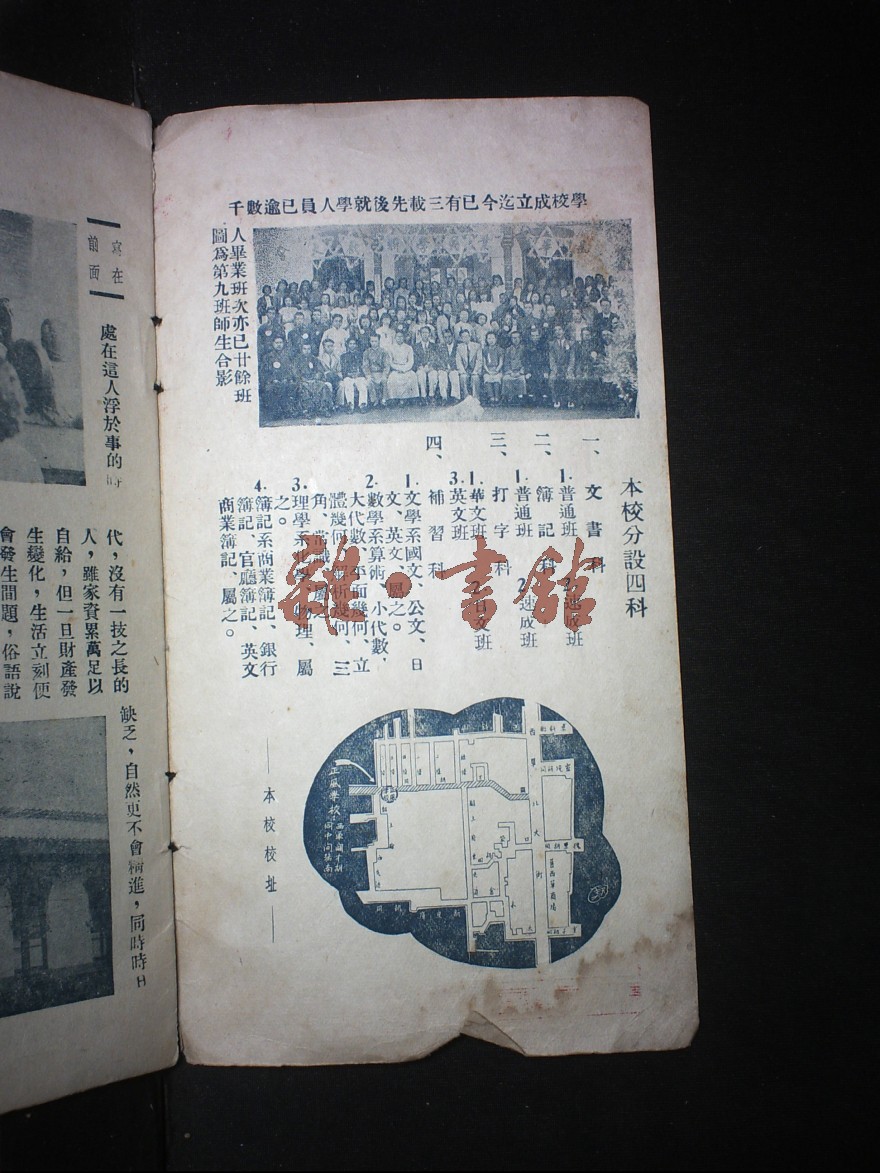 學校成立迄今已有三載先後就學人員已逾數千
人畢業班次亦已廿餘班
圖爲第九班師生合影
本校分設四科
一、文書科
1.普通班 2.速成班
二、簿記科
1.普通班 2.速成班
三、打字科
1.華文班 2.日文班
3.英文班
四、補習科
1.文學系國文、公文、日
文、英文、屬之。
2.數學系算術、小代數、
大代數、平面幾何、立
體幾何、解析幾何、三
角、常識、屬之。
3.理學系化學、物理、屬
之。
4.簿記系商業簿記、銀行
簿記、官廳簿記、英文
商業簿記、屬之。
本校校址
正風學校
西單北大街
舊西單商場
雜·書館
寫在
前面
處在這人浮於事的時
代,沒有一技之長的
人,雖家資累萬足以
自給,但一旦財產發
生變化,生活立刻便
會發生問題,俗語說
缺乏,自然更不會精進,同時時日